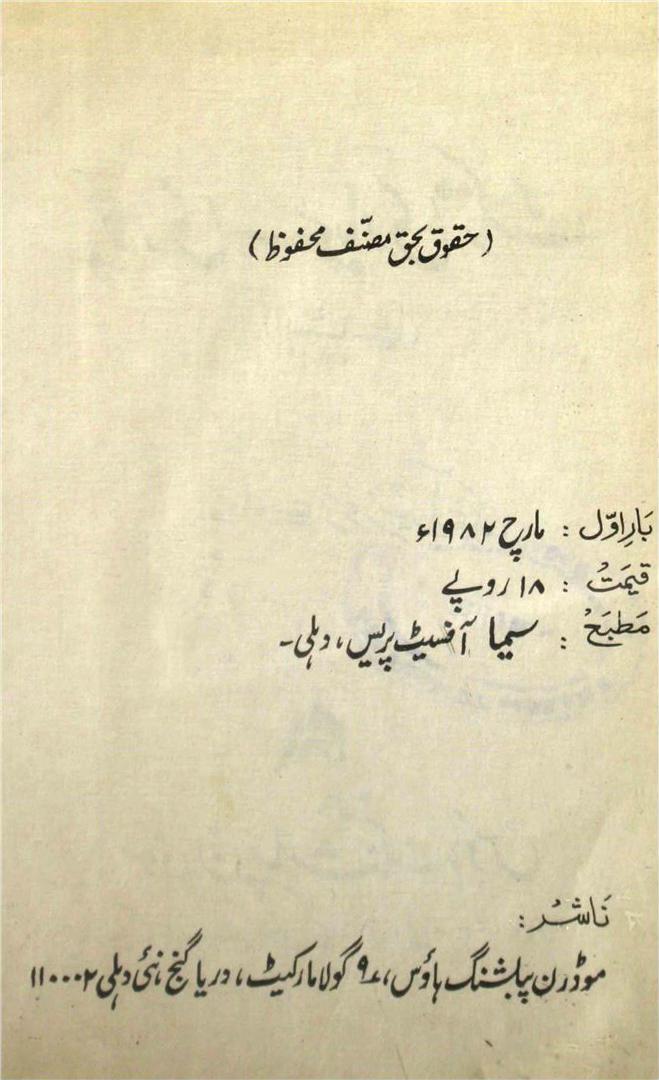 (حقوق بحق مصنّف محفوظ)
بَارِ اوّل : مارچ ۱۹۸۲ء
قیمَتُ : ۱۸ روپے
مَطبَعُ : سیما آفسیٹ پریس، دہلی۔
نَاشرُ :
موڈرن پبلشنگ ہاؤس، ۹ گولا مارکیٹ، دریا گنج نئی دہلی ۱۱۰۰۰۲